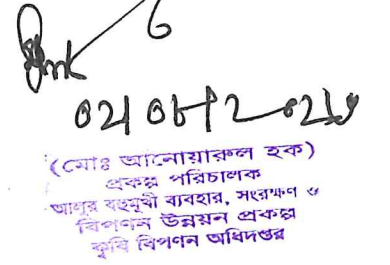 (মোঃ আনোয়ারুল হক)
প্রকল্প পরিচালক
আলুর বহুমুখী ব্যবহার, সংরক্ষণ ও
বিপণন উন্নয়ন প্রকল্প
কৃষি বিপণন অধিদপ্তর